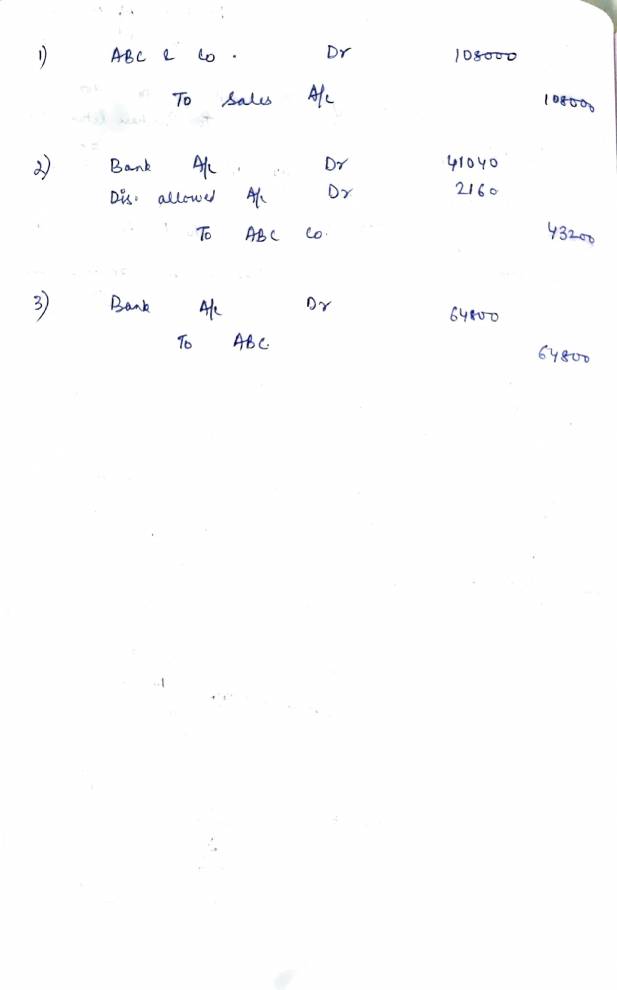 1) ABC & Co. Dr 108000
To Sales A/c 108000
2) Bank A/c Dr 41040
Dis. allowed A/c Dr 2160
To ABC Co. 43200
3) Bank A/c Dr 64800
To ABC. 64800